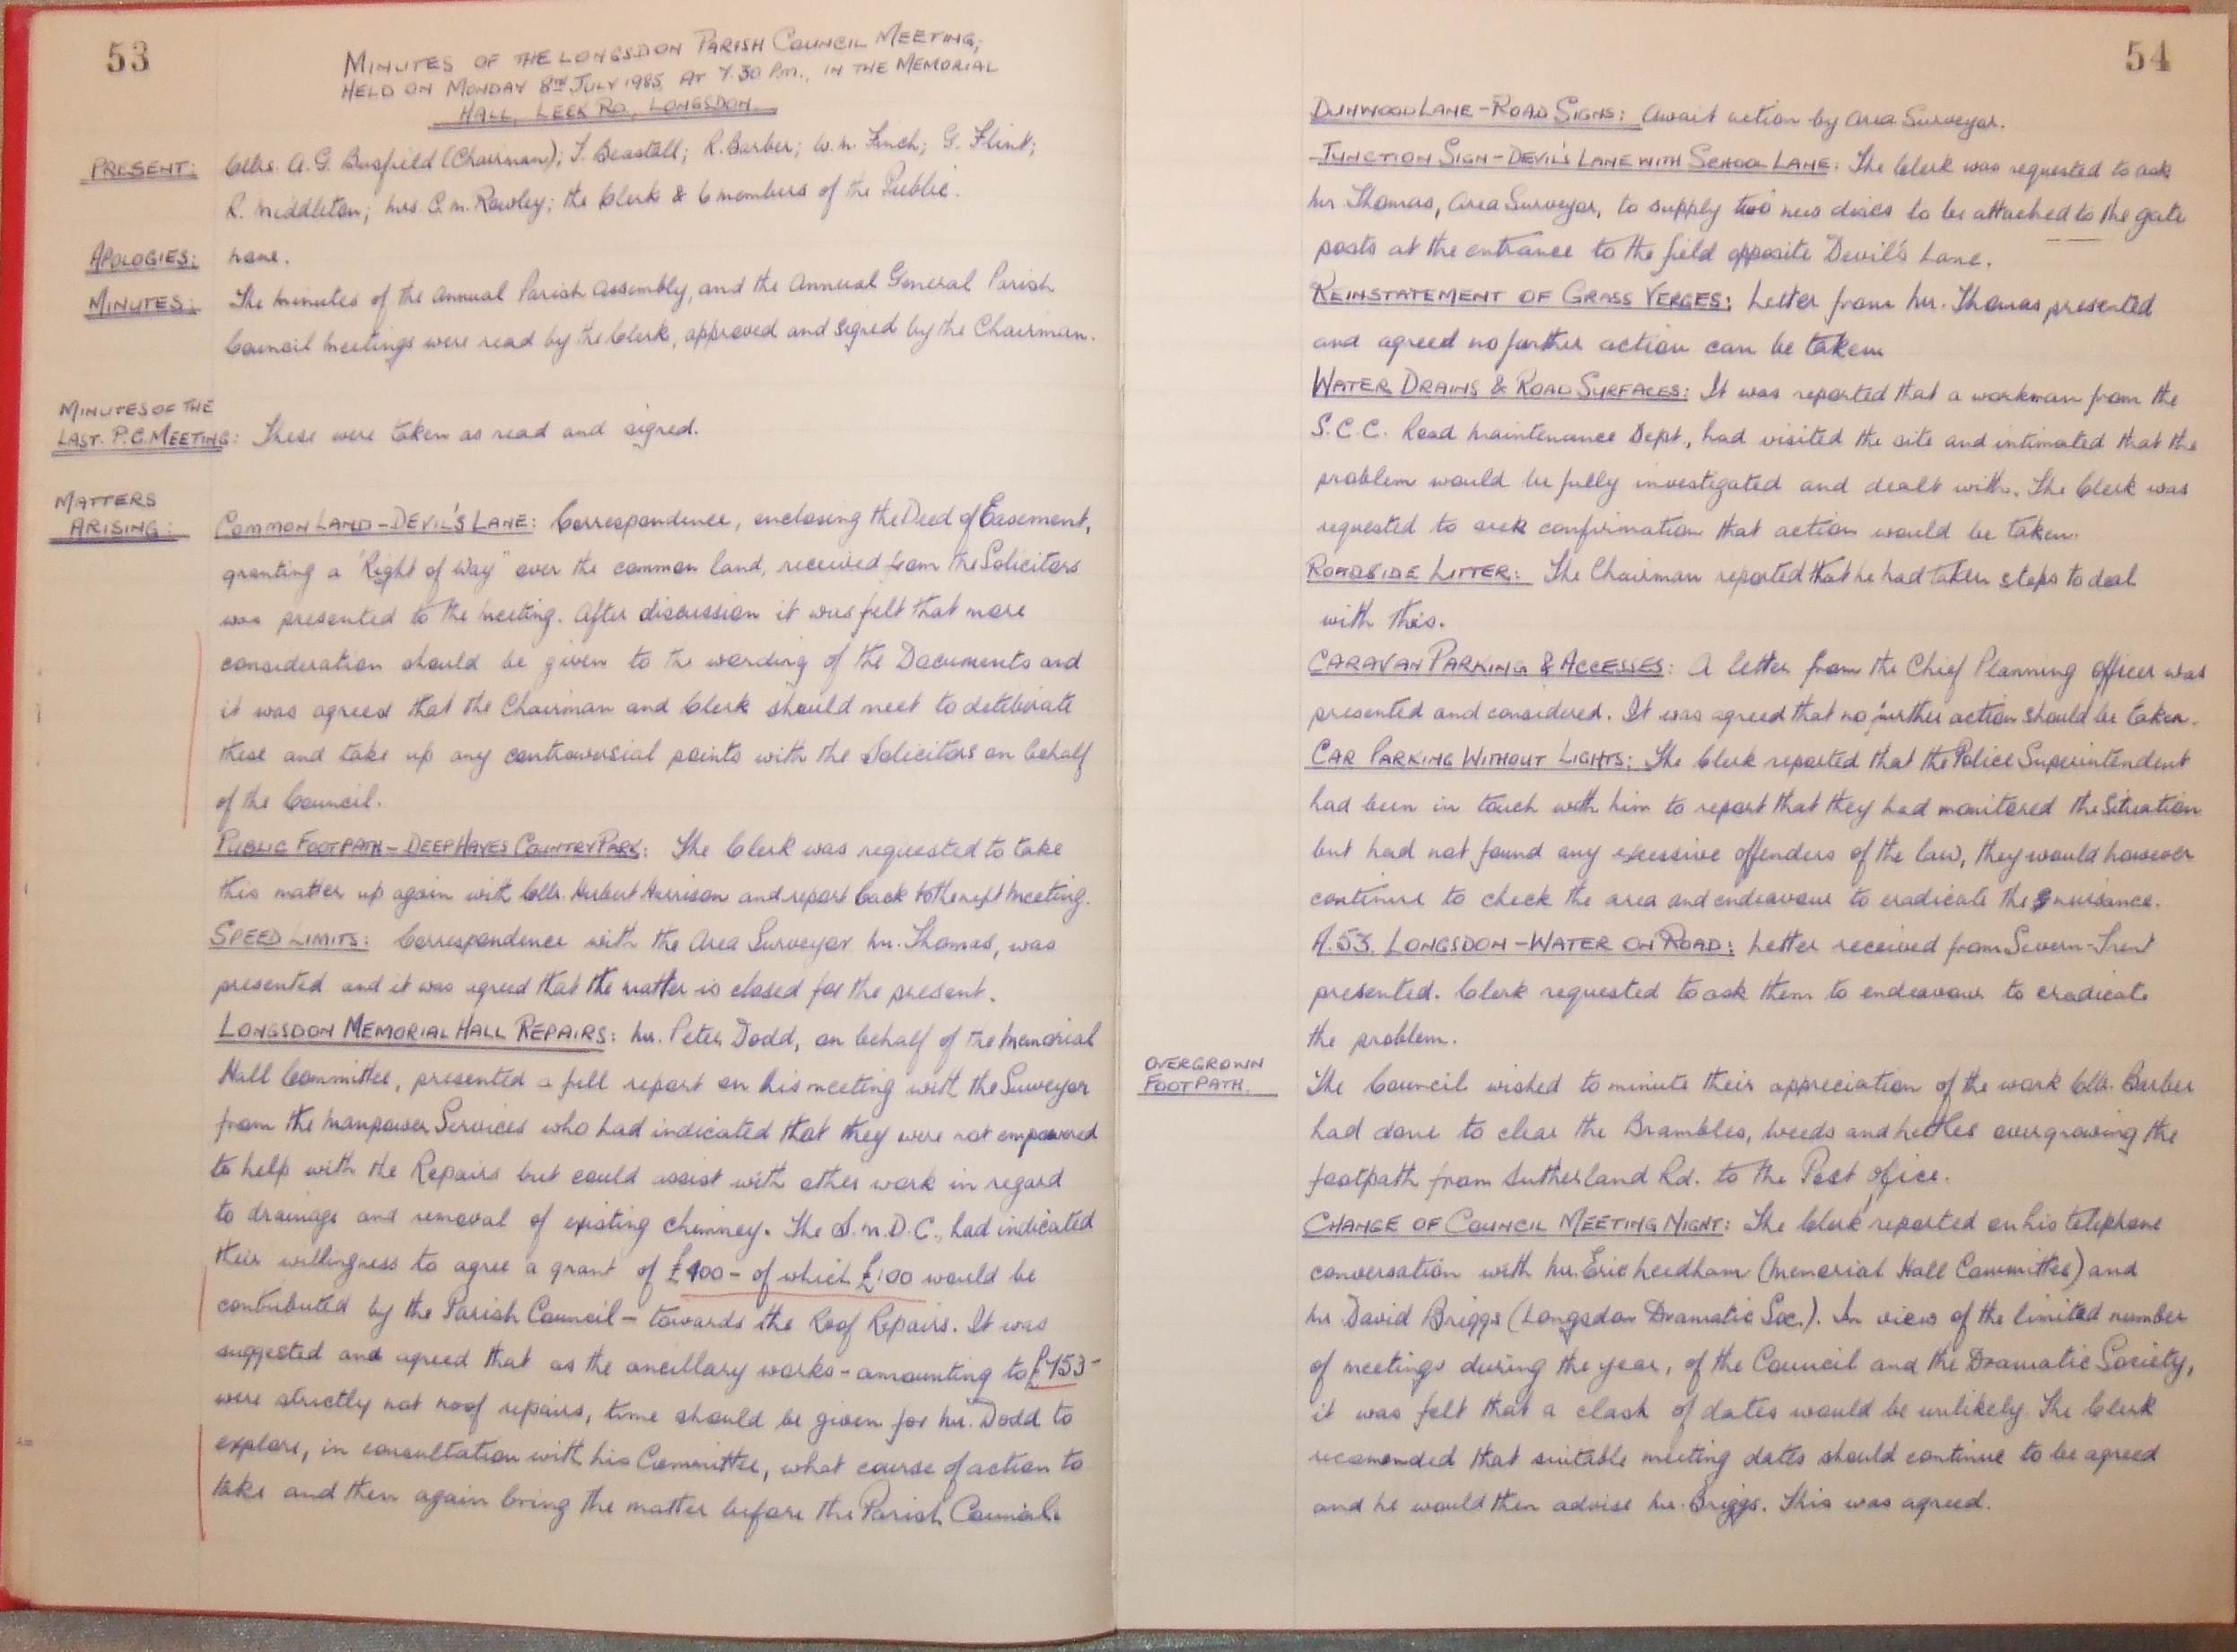 53
MINUTES OF THE LONGSDON PARISH COUNCIL MEETING;
HELD ON MONDAY 8TH JULY 1985, AT 7.30 P.m., IN THE MEMORIAL
HALL, LEEK RD., LONGSDON.
PRESENT: Cllrs. A.G. Busfield (Chairman); J. Beastall; R. Barber; W.N. Finch; G. Flint;
R. Middleton; Mrs C.M. Rowley; the Clerk & 6 members of the Public.
APOLOGIES: None.
MINUTES: The Minutes of the Annual Parish Assembly, and the Annual General Parish
Council Meetings were read by the Clerk, approved and signed by the Chairman.
MINUTES OF THE
LAST. P.C. MEETING: These were taken as read and signed.
MATTERS
ARISING: COMMON LAND - DEVIL'S LANE: Correspondence, enclosing the Deed of Easement,
granting a "Right of Way" over the common land, received from the Solicitors
was presented to the Meeting. After discussion it was felt that more
consideration should be given to the wording of the Documents and
it was agreed that the Chairman and Clerk should meet to deteberate
these and take up any controversial points with the Solicitors on behalf
of the Council.
PUBLIC FOOTPATH - DEEP HAYES COUNTRY PARK: The Clerk was requested to take
this matter up again with Cllr. Herbert Harrison and report back to the next Meeting.
SPEED LIMITS: Correspondence with the Area Surveyor Mr. Thomas, was
presented and it was agreed that the matter is closed for the present.
LONGSDON MEMORIAL HALL REPAIRS: Mr. Peter Dodd, on behalf of the Memorial
Hall Committee, presented a full report on his meeting with the Surveyor
from the Manpower Services who had indicated that they were not empowered
to help with the Repairs but could assist with other work in regard
to drainage and removal of existing chimney. The S.M.D.C., had indicated
their willingness to agree a grant of £400 - of which £100 would be
contributed by the Parish Council - towards the Roof Repairs. It was
suggested and agreed that as the ancillary works - amounting to £753 -
were strictly not roof repairs, time should be given for Mr. Dodd to
explore, in consultation with his Committee, what course of action to
take and then again bring the matter before the Parish Council.
54
DUNWOOD LANE - ROAD SIGNS: Await action by Area Surveyor.
JUNCTION SIGN - DEVIL'S LANE WITH SCHOOL LANE: The Clerk was requested to ask
Mr Thomas, Area Surveyor, to supply two new discs to be attached to the gate
posts at the entrance to the field opposite Devil's Lane.
REINSTATEMENT OF GRASS VERGES: Letter from Mr. Thomas presented
and agreed no further action can be taken
WATER DRAINS & ROAD SURFACES: It was reported that a workman from the
S.C.C. Road Maintenance Dept., had visited the site and intimated that the
problem would be fully investigated and dealt with. The Clerk was
requested to seek confirmation that action would be taken.
ROADSIDE LITTER: The Chairman reported that he had taken steps to deal
with this.
CARAVAN PARKING & ACCESSES: A letter from the Chief Planning Officer was
presented and considered. It was agreed that no further action should be taken.
CAR PARKING WITHOUT LIGHTS: The Clerk reported that the Police Superintendent
had been in touch with him to report that they had monitored the Situation
but had not found any excessive offenders of the law, they would however
continue to check the area and endeavour to eradicate the nuisance.
A.53. LONGSDON - WATER ON ROAD: Letter received from Severn-Trent
presented. Clerk requested to ask them to endeavour to eradicate
the problem.
OVERGROWN
FOOTPATH. The Council wished to minute their appreciation of the work Cllr. Barber
had done to clear the Brambles, Weeds and Nettles overgrowing the
footpath from Sutherland Rd. to the Post Office.
CHANGE OF COUNCIL MEETING NIGHT: The Clerk reported on his telephone
conversation with Mr. Eric Needham (Memorial Hall Committee) and
Mr David Briggs (Longsdon Dramatic Soc.). In view of the limited number
of meetings during the year, of the Council and the Dramatic Society,
it was felt that a clash of dates would be unlikely. The Clerk
recomended that suitable meeting dates should continue to be agreed
and he would then advise Mr. Briggs. This was agreed.